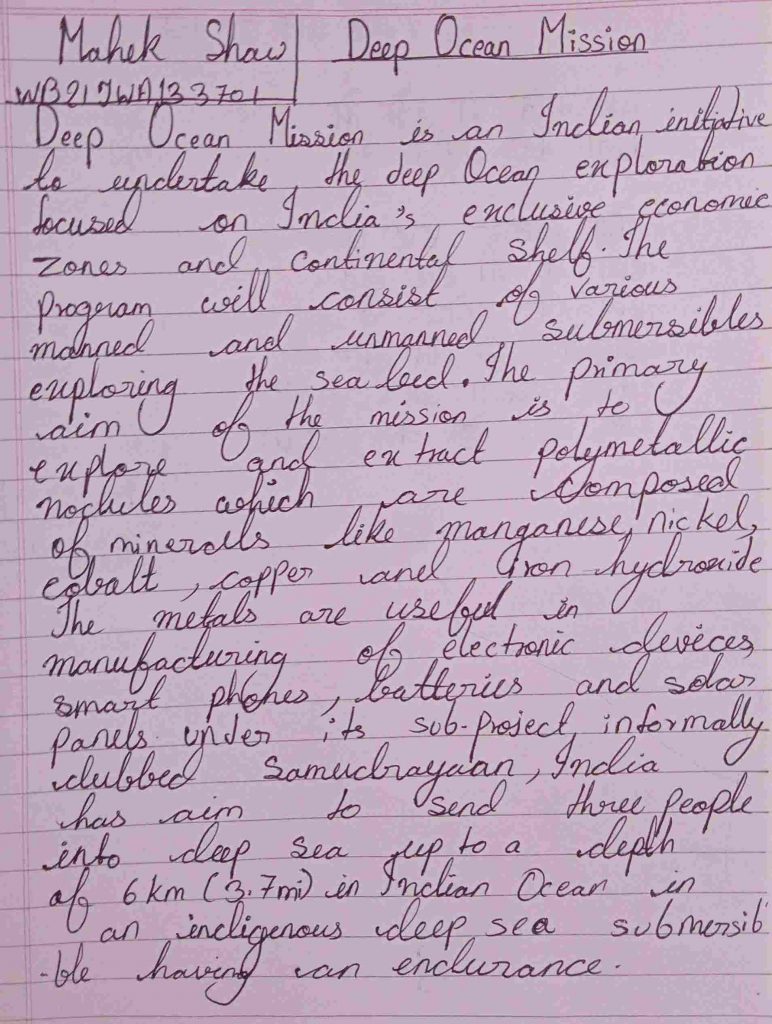 Mahek Shaw | Deep Ocean Mission
WB21JWA133701
Deep Ocean Mission is an Indian initiative
to undertake the deep Ocean exploration
focused on India's exclusive economic
zones and continental shelf. The
Program will consist of various
manned and unmanned submersibles
exploring the sea bed. The primary
aim of the mission is to
explore and extract polymetallic
nodules which are composed
of minerals like manganese, nickel,
cobalt, copper and iron hydroxide
The metals are useful in
manufacturing of electronic devices,
smart phones, batteries and solar
Panels. under its sub-project informally
dubbed Samudrayaan, India
has aim to send three people
into deep sea up to a depth
of 6 km (3.7mi) in Indian Ocean in
an indigenous deep sea submersib
-ble having an endurance.